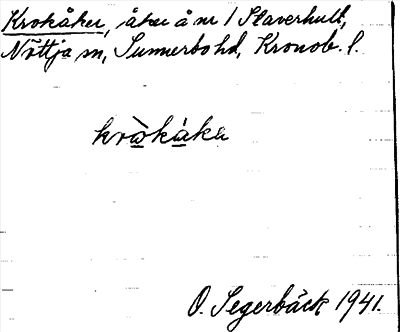 Krokåker, åker å nr 1 Staverhult,
Nöttja sn, Sunnerbo hd, Kronob. l.
kròkåka
O. Segerbäck 1941.